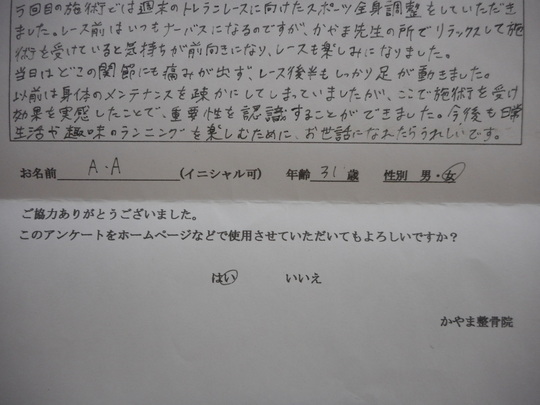 今回の施術では週末のトレランレースに向けたスポーツ全身調整をしていただき
ました。レース前はいつもナーバスになるのですが、かやま先生の所でリラックスして施
術を受けていると気持ちが前向きになり、レースも楽しみになりました。
当日はどこの関節にも痛みが出ず、レース後半もしっかり足が動きました。
以前は身体のメンテナンスを疎かにしてしまっていましたが、ここで施術を受け
効果を実感したことで、重要性を認識することができました。今後も日常
生活や趣味のランニングを楽しむために、お世話になれたらうれしいです。
お名前 A.A (イニシャル可) 年齢 31 歳 性別 男・女
ご協力ありがとうございました。
このアンケートをホームページなどで使用させていただいてもよろしいですか?
はい いいえ
かやま整骨院